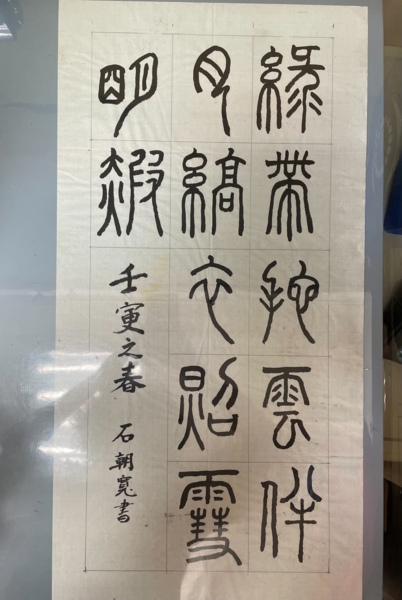 綠帶拖雲伴
月縞衣照雪
明赮
壬寅之春 石朝寬書